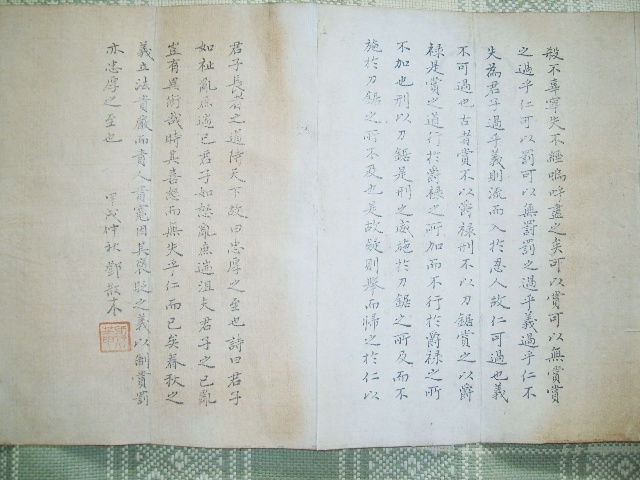 殺不辜寧失不經嗚呼盡之矣可以賞可以無賞賞
之過乎仁可以罰可以無罰罰之過乎義過乎仁不
失為君子過乎義則流而入於忍人故仁可過也義
不可過也古者賞不以爵祿刑不以刀鋸賞之以爵
祿是賞之道行於爵祿之所加而不行於爵祿之所
不加也刑以刀鋸是刑之威施於刀鋸之所及而不
施於刀鋸之所不及也是故疑則舉而歸之於仁以
君子長者之道待天下故曰忠厚之至也詩曰君子
如祉亂庶遄已君子如怒亂庶遄沮夫君子之已亂
豈有異術哉時其喜怒而無失乎仁而已矣春秋之
義立法貴嚴而責人貴寬因其褒貶之義以制賞罰
亦忠厚之至也 甲戌仲秋 鄧散木